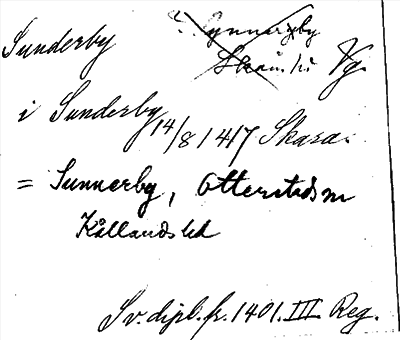 Sunderby Vg.
i Sunderby 14/8 1417 Skara.
= Sunnerby, Otterstads sn
Kållands hd
Sv. dipl. fr. 1401. III Reg.